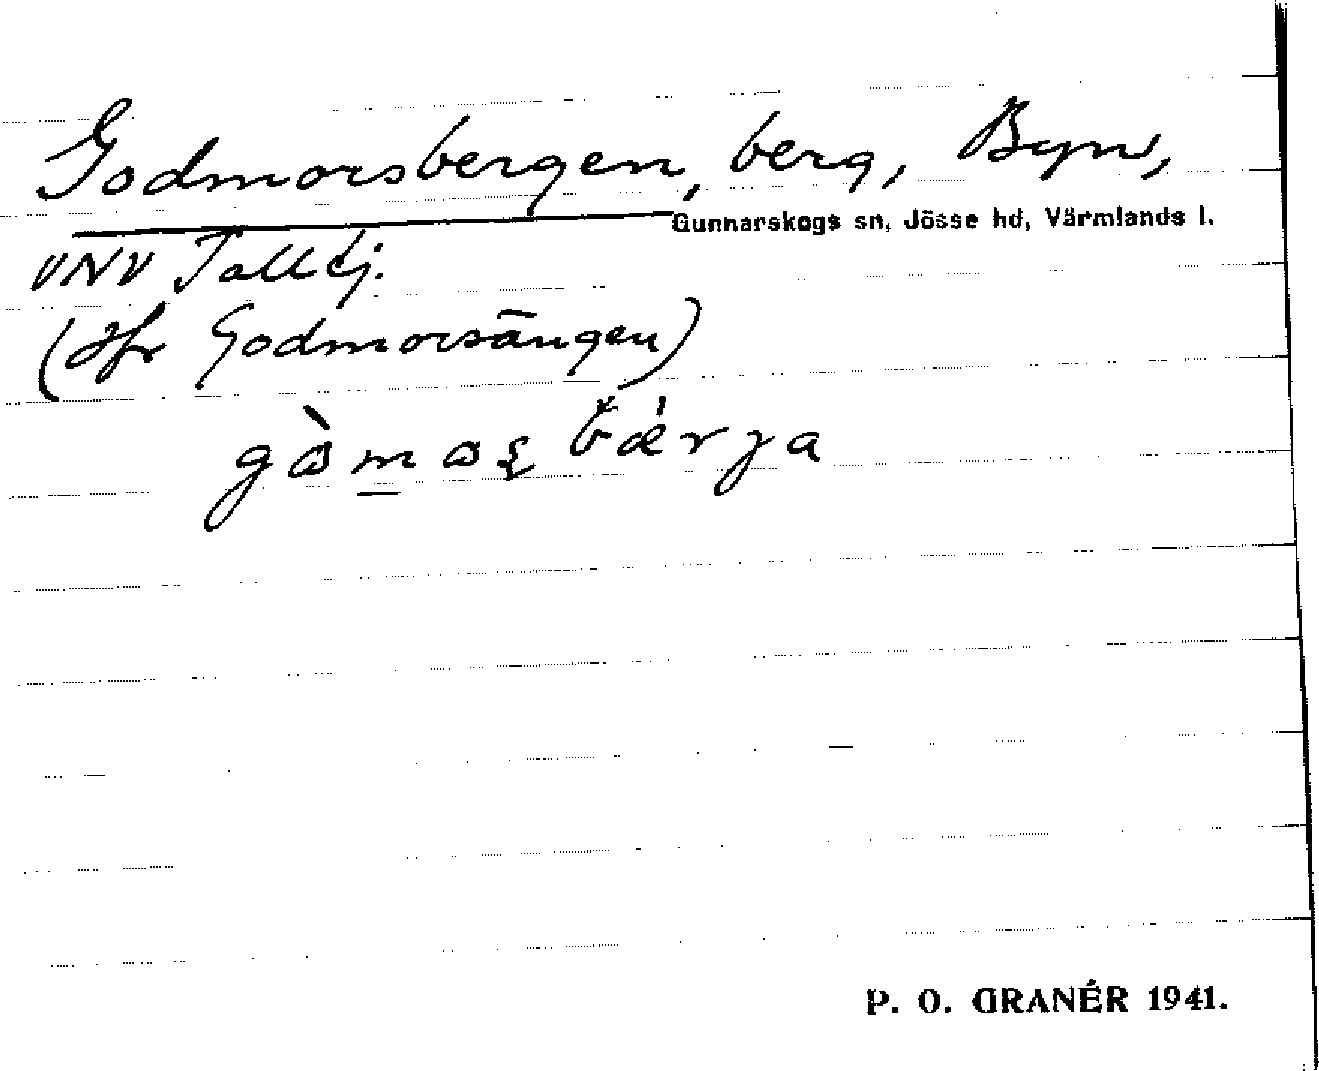 Godmorsbergen, berg, Byn,
Gunnarskogs sn, Jösse hd, Värmlands l.
VNV Talltj.
(Jfr Godmorsängen)
gòmos bǽrja
P. O. GRANÉR 1941.